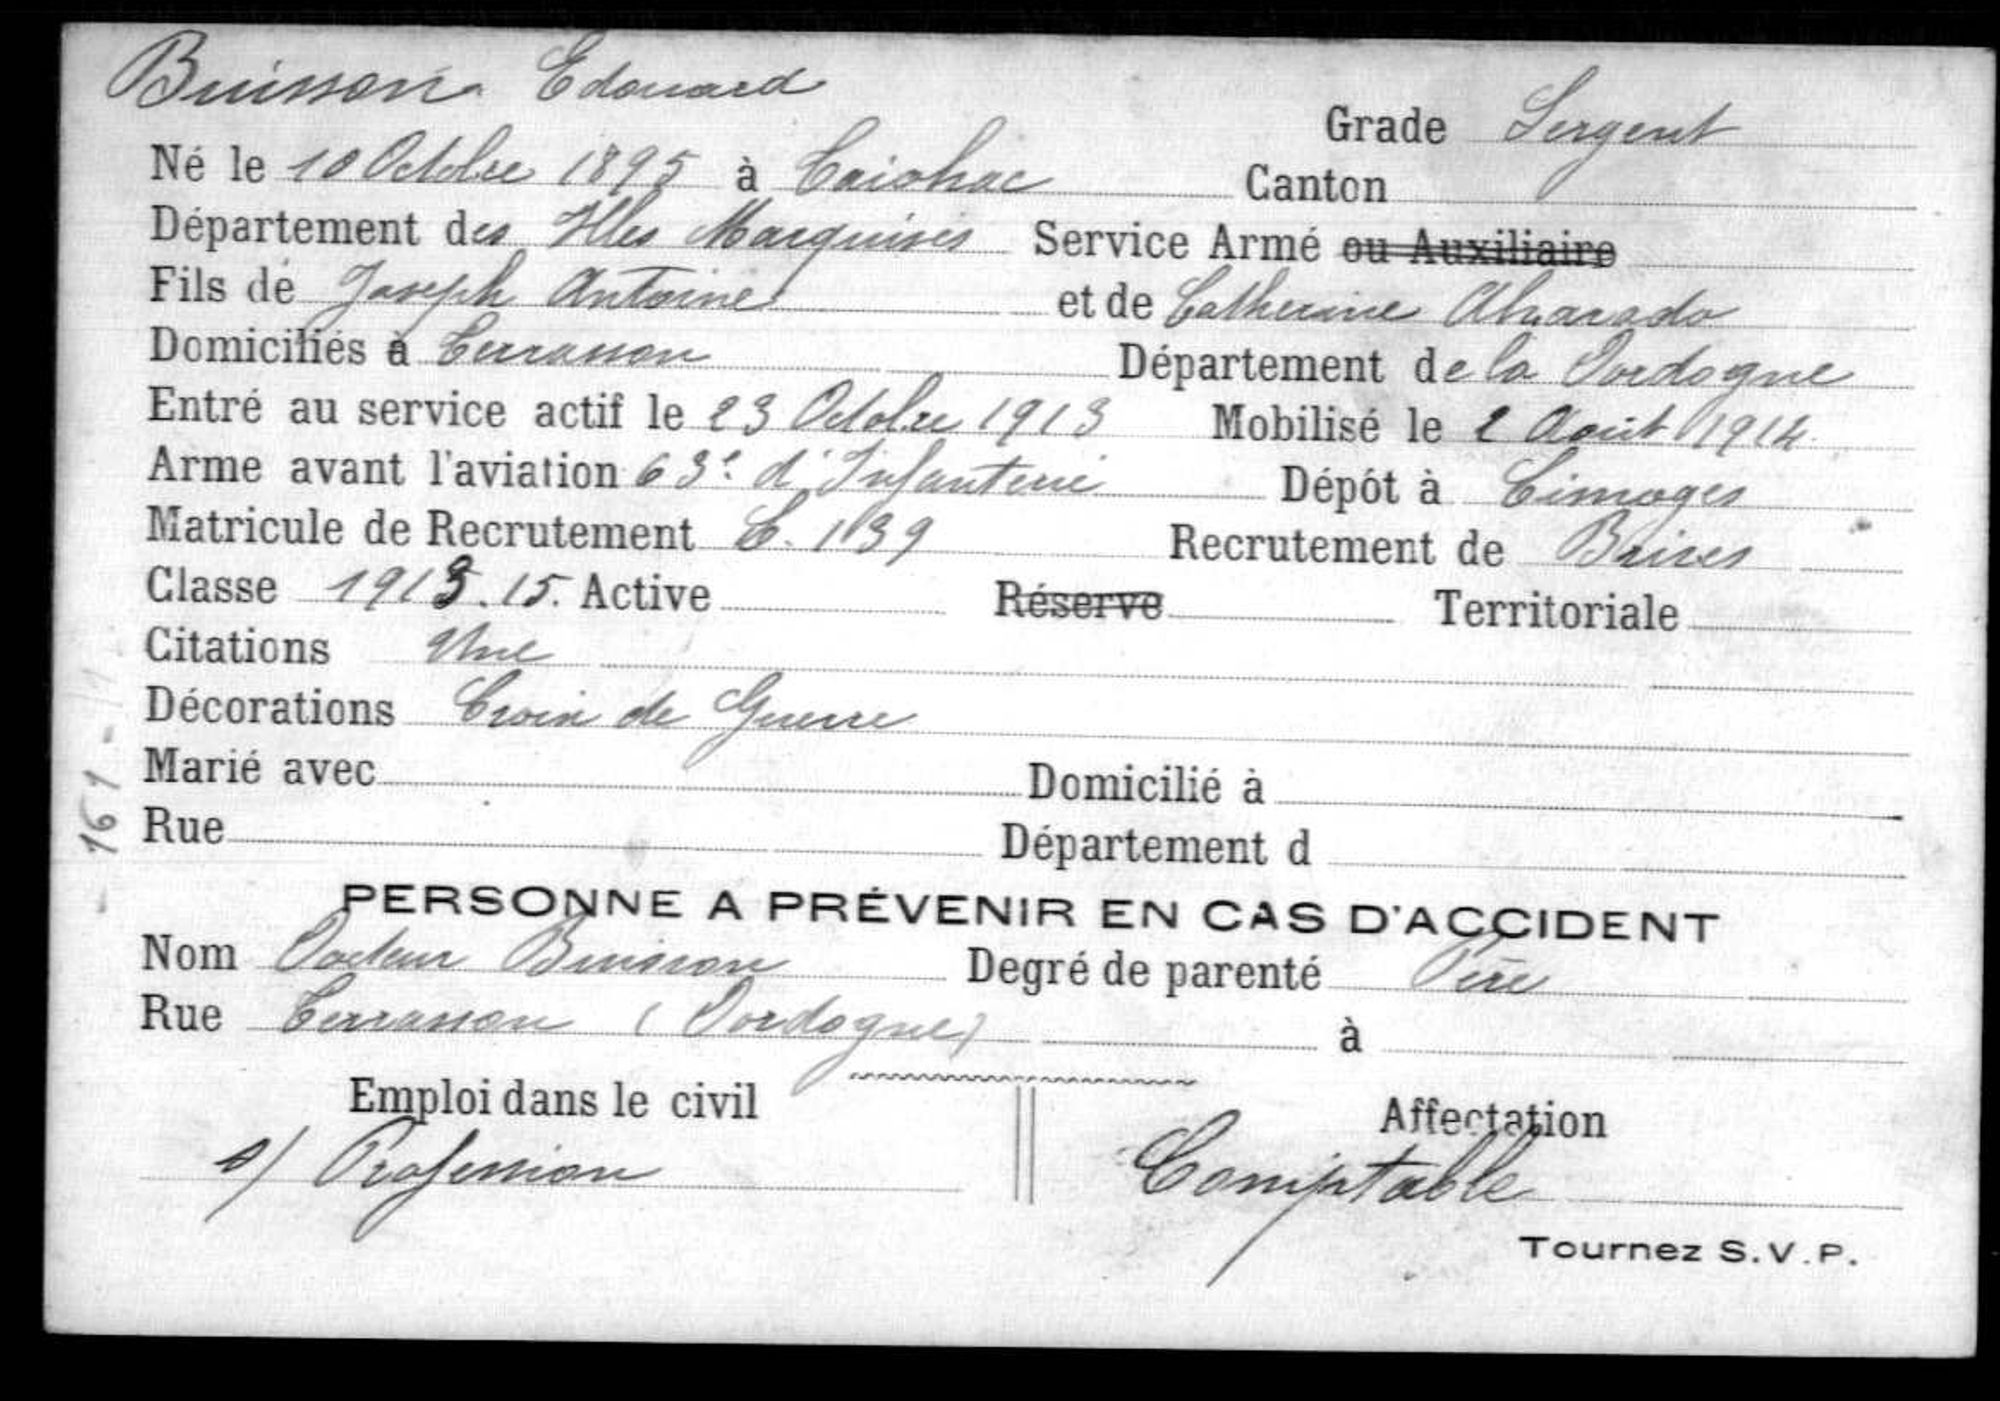 Buisson Edouard
Grade Sergent
Né le 10 Octobre 1895 à Taiohac Canton
Département des Illes Marquises Service Armé ou Auxiliaire
Fils de Joseph Antoine et de Catherine Alvarado
Domiciliés à Terrasson Département de la Dordogne
Entré au service actif le 23 Octobre 1913 Mobilisé le 2 Août 1914
Arme avant l'aviation 63e d'Infanterie Dépôt à Limoges
Matricule de Recrutement L. 139 Recrutement de Brives
Classe 1913.15. Active Réserve Territoriale
Citations Une
Décorations Croix de Guerre
Marié avec Domicilié à
Rue Département d
- 161 -
PERSONNE A PRÉVENIR EN CAS D'ACCIDENT
Nom Docteur Buisson Degré de parenté Père
Rue Terrasson (Dordogne) à
Emploi dans le civil Affectation
s/ Profession Comptable
Tournez S.V.P.